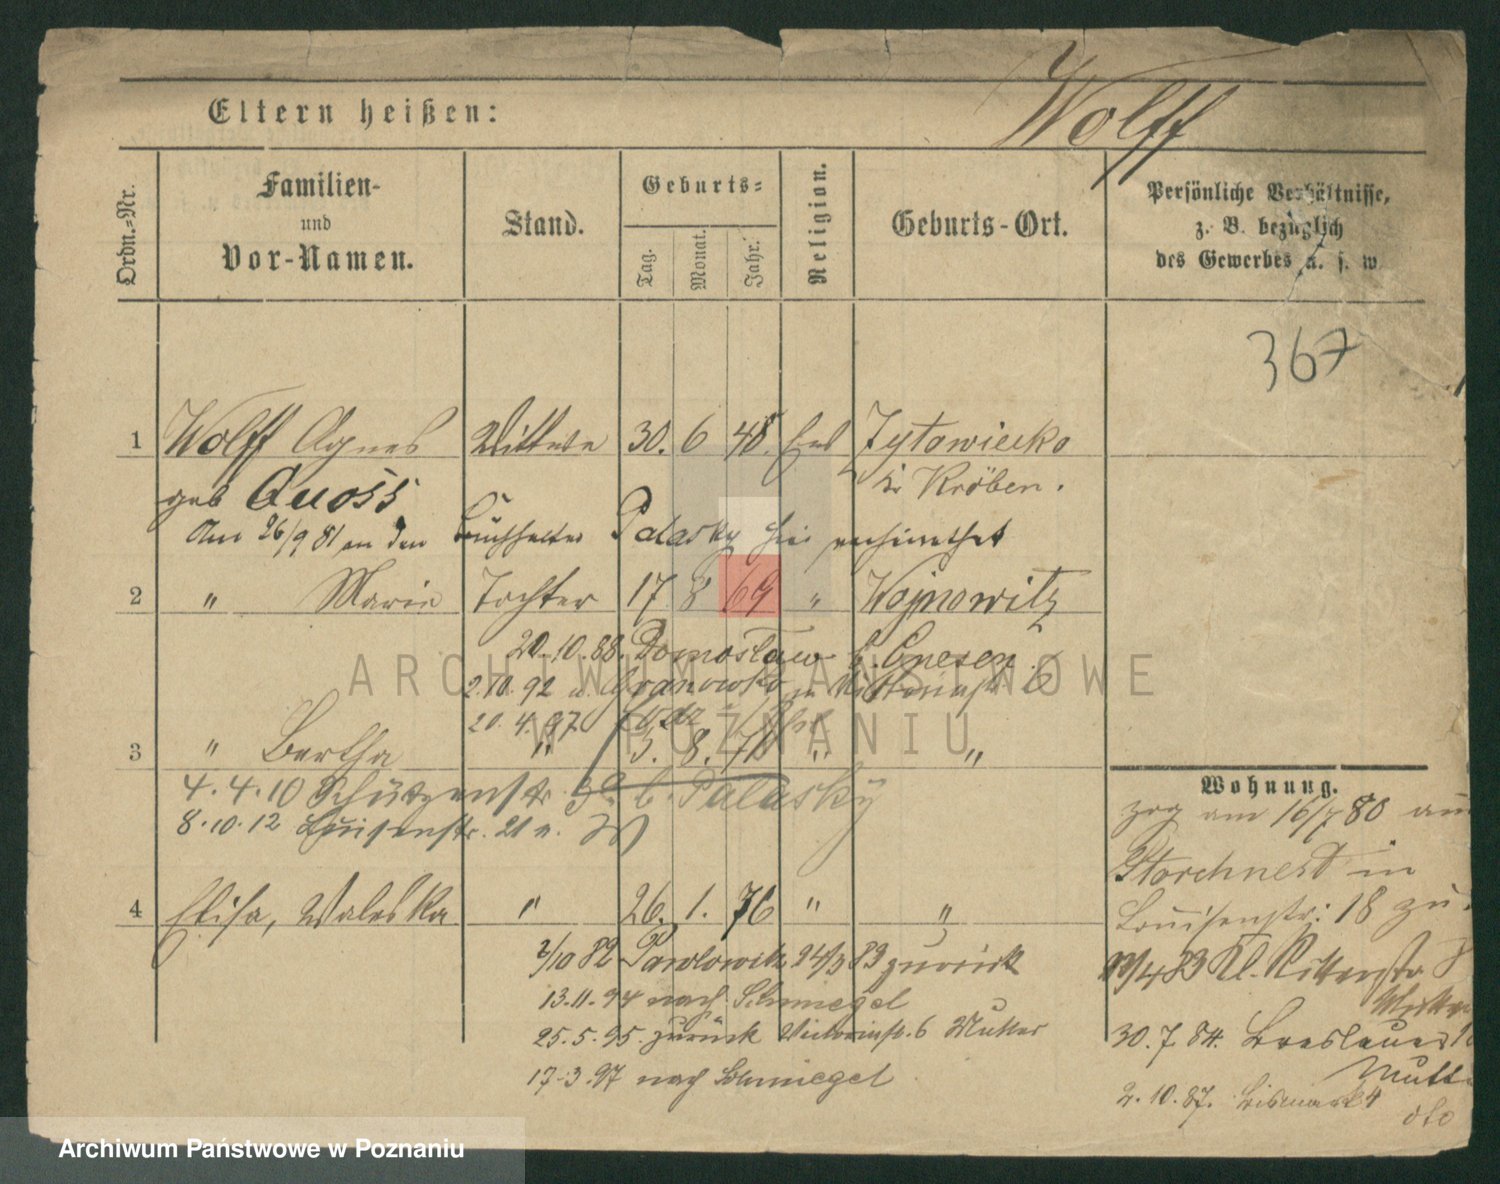 Eltern heißen:
Wolff
Ordn.-Nr.
Familien-
und
Vor-Namen.
Stand.
Geburts=
Tag.
Monat.
Jahr.
Religion.
Geburts-Ort.
Persönliche Verhältnisse,
z. B. bezüglich
des Gewerbes u. s. w
367
1 Wolff Agnes Wittwe 30. 6 48. Zytowiecko
geb Quoss Kröben.
Am 26/9 81 an den Buchhalter Palasky hier verheirathet
2 " Marie Tochter 17 8 69 " Wojnowitz
20.10.88. Domoslaw b. Gnesen
2.10.92 Granowko 6
20.4.97
3 " Bertha " 5. 8. 71 " "
4.4.10 Schützenstr. b. Palasky
8.10.12 Luisenstr. 21
4 Elisa, Waleska " 26. 1. 76 " "
2/10 82 Pawlowitz 24/3 83 zurück
13.11.94 nach Schmiegel
25.5.95. zurück Victoriastr. 6 Mutter
17.3.97 nach Schmiegel
Wohnung.
zog am 16/7 80 aus
Storchnest in
Louisenstr: 18 zu.
4 83 Kl. Ritterstr
30.7.84. Breslauer
2.10.87. Bismark 4
ARCHIWUM PAŃSTWOWE
W POZNANIU
Archiwum Państwowe w Poznaniu